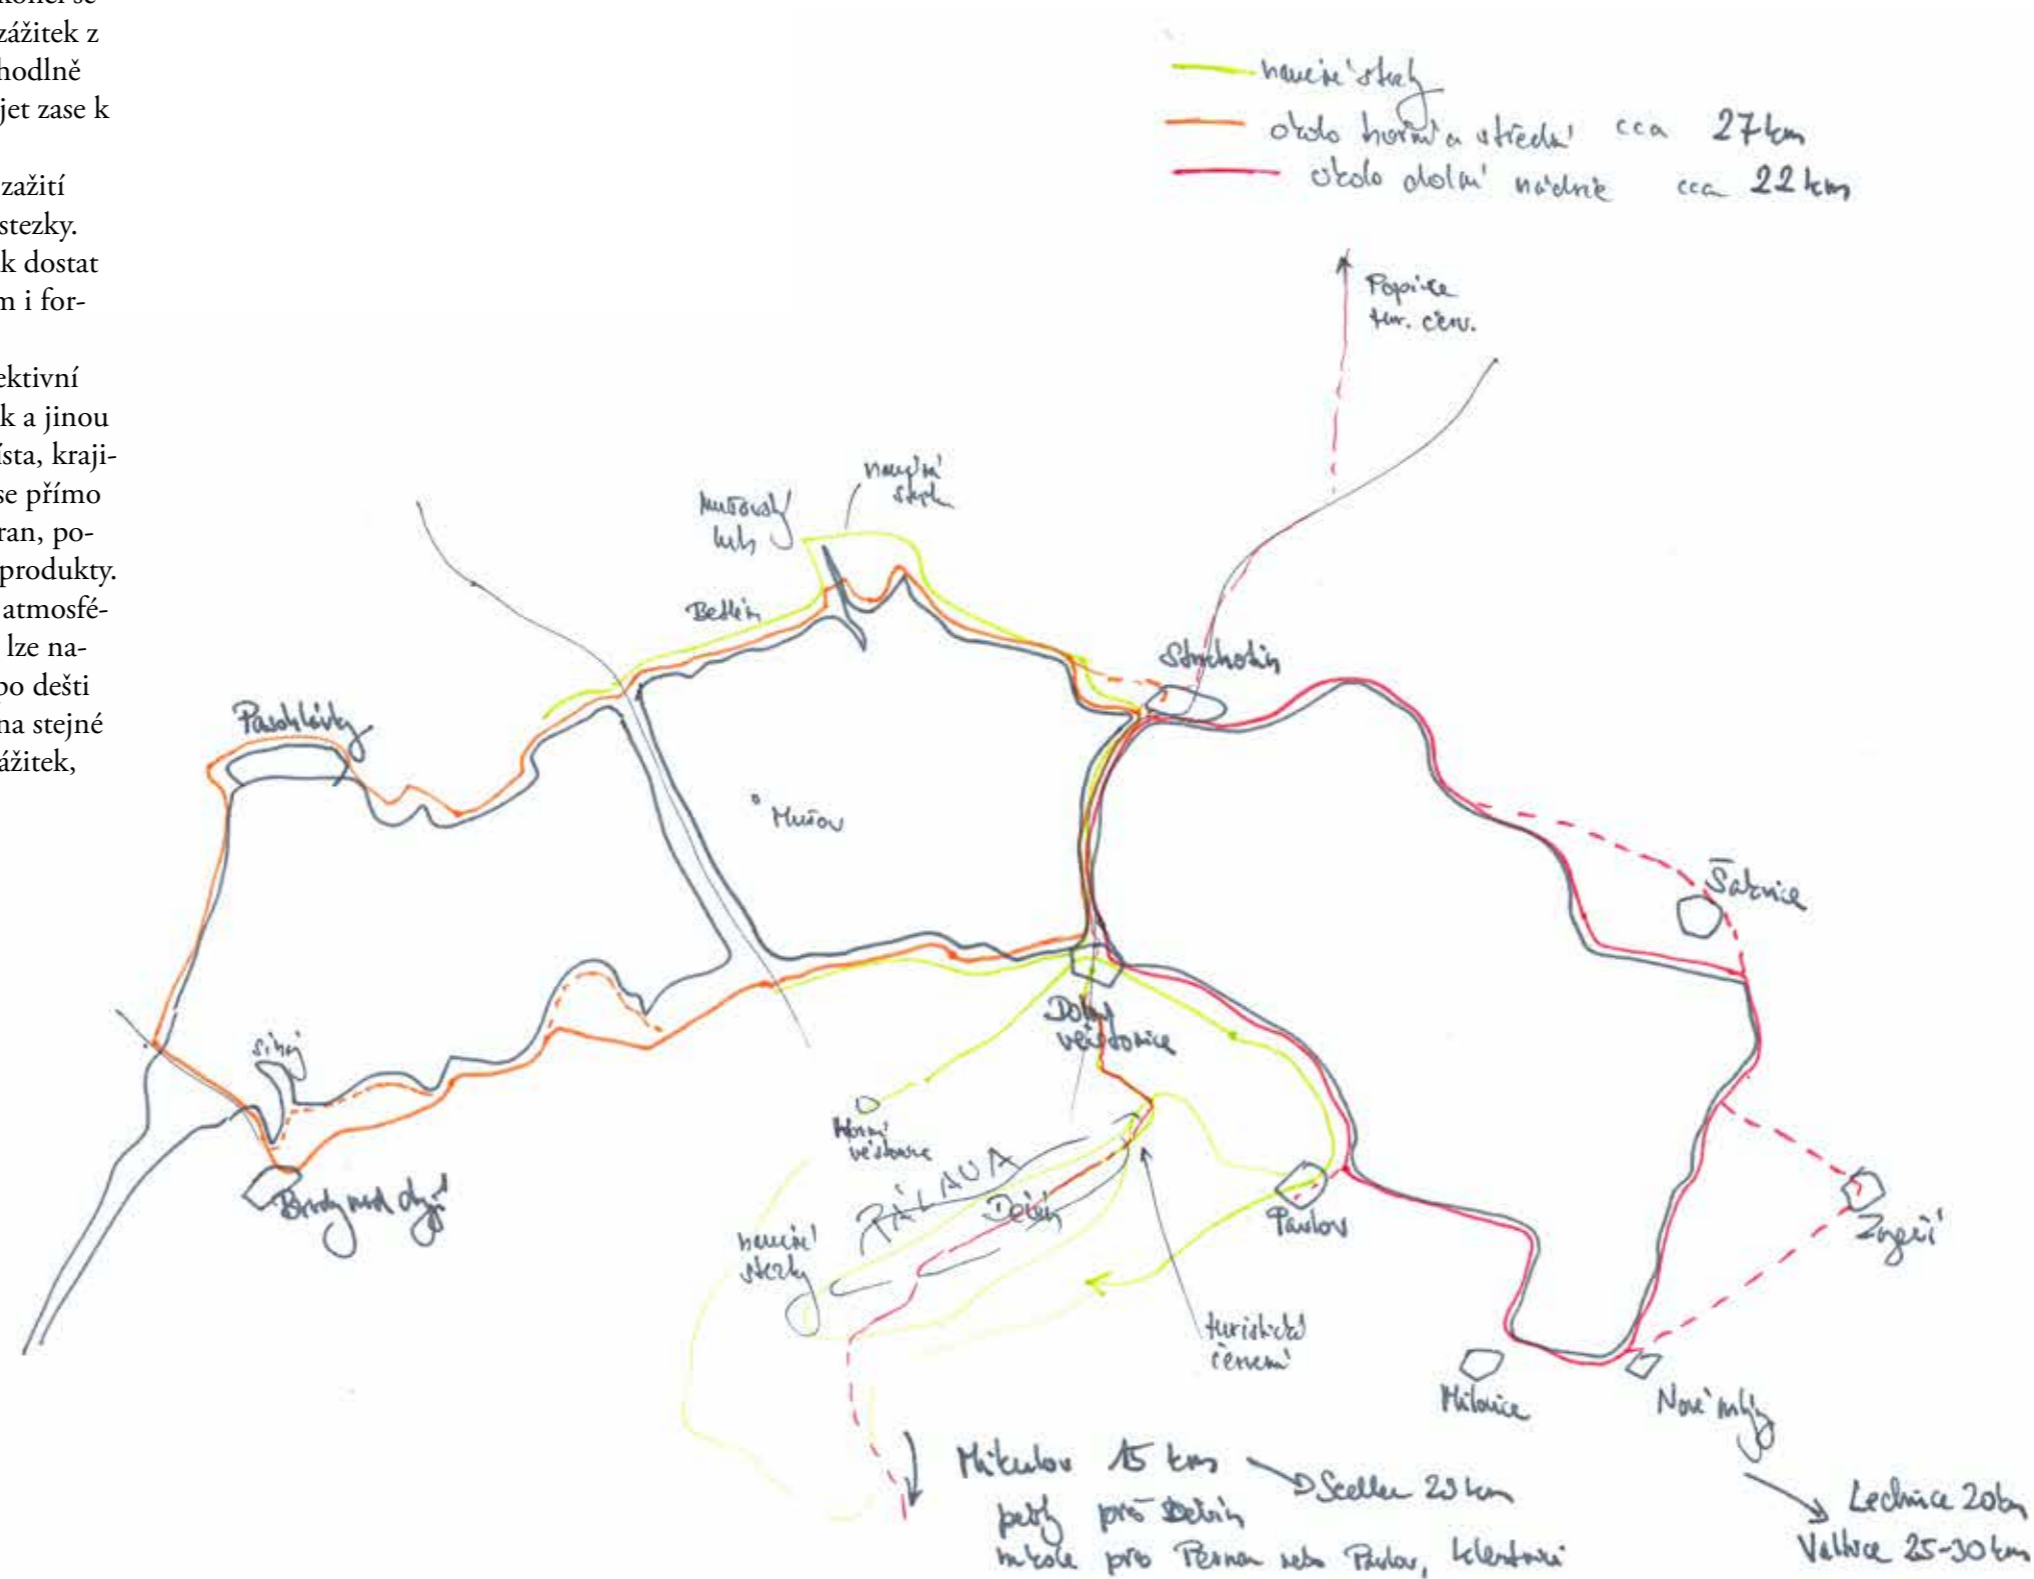 zážitek z
hodlně
jet zase k
zažití
stezky.
k dostat
m i for-
ektivní
k a jinou
ísta, kraji-
se přímo
ran, po-
produkty.
atmosfé-
lze na-
po dešti
na stejné
ážitek,
naučné stezky
okolo horní a střední cca 27 km
okolo dolní nádrže cca 22 km
Popice
tur. červ.
naučná
stezka
Mušovský
luh
Betlém
Strachotín
Pasohlávky
Mušov
Šakvice
Dolní
věstonice
Horní
věstonice
Brody nad dyjí
PÁLAVA
Děvín
naučné
stezky
Pavlov
Zaječí
turistická
červená
Milovice
Nové mlýny
Mikulov 15 km
Sedlec 23 km
pěšky přes Děvín
na kole přes Pernou nebo Pavlov, Klentnici
Lednice 20km
Valtice 25-30 km